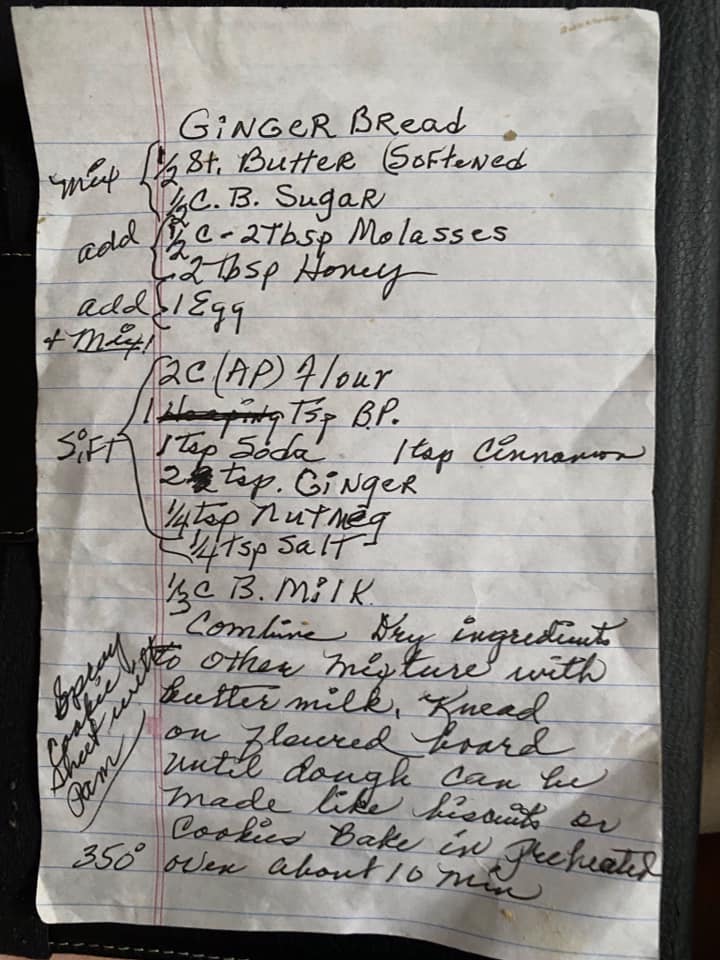 GINGER BREAD
mix ½ St. Butter (Softened
½ C. B. Sugar
add ½ C - 2Tbsp Molasses
2 Tbsp Honey
add 1 Egg
+ Mix!
2C (AP) Flour
1 Heaping Tsp B.P.
Sift 1 Tsp Soda 1 tsp Cinnamon
2 tsp. Ginger
¼ tsp Nutmeg
¼ tsp Salt
⅓ C B. Milk
Combine Dry ingredients
to other mixture with
buttermilk. Knead
on floured board
until dough can be
made like biscuits or
Cookies Bake in Preheated
350° oven about 10 min
Spray
Cookie
Sheet with
Pam